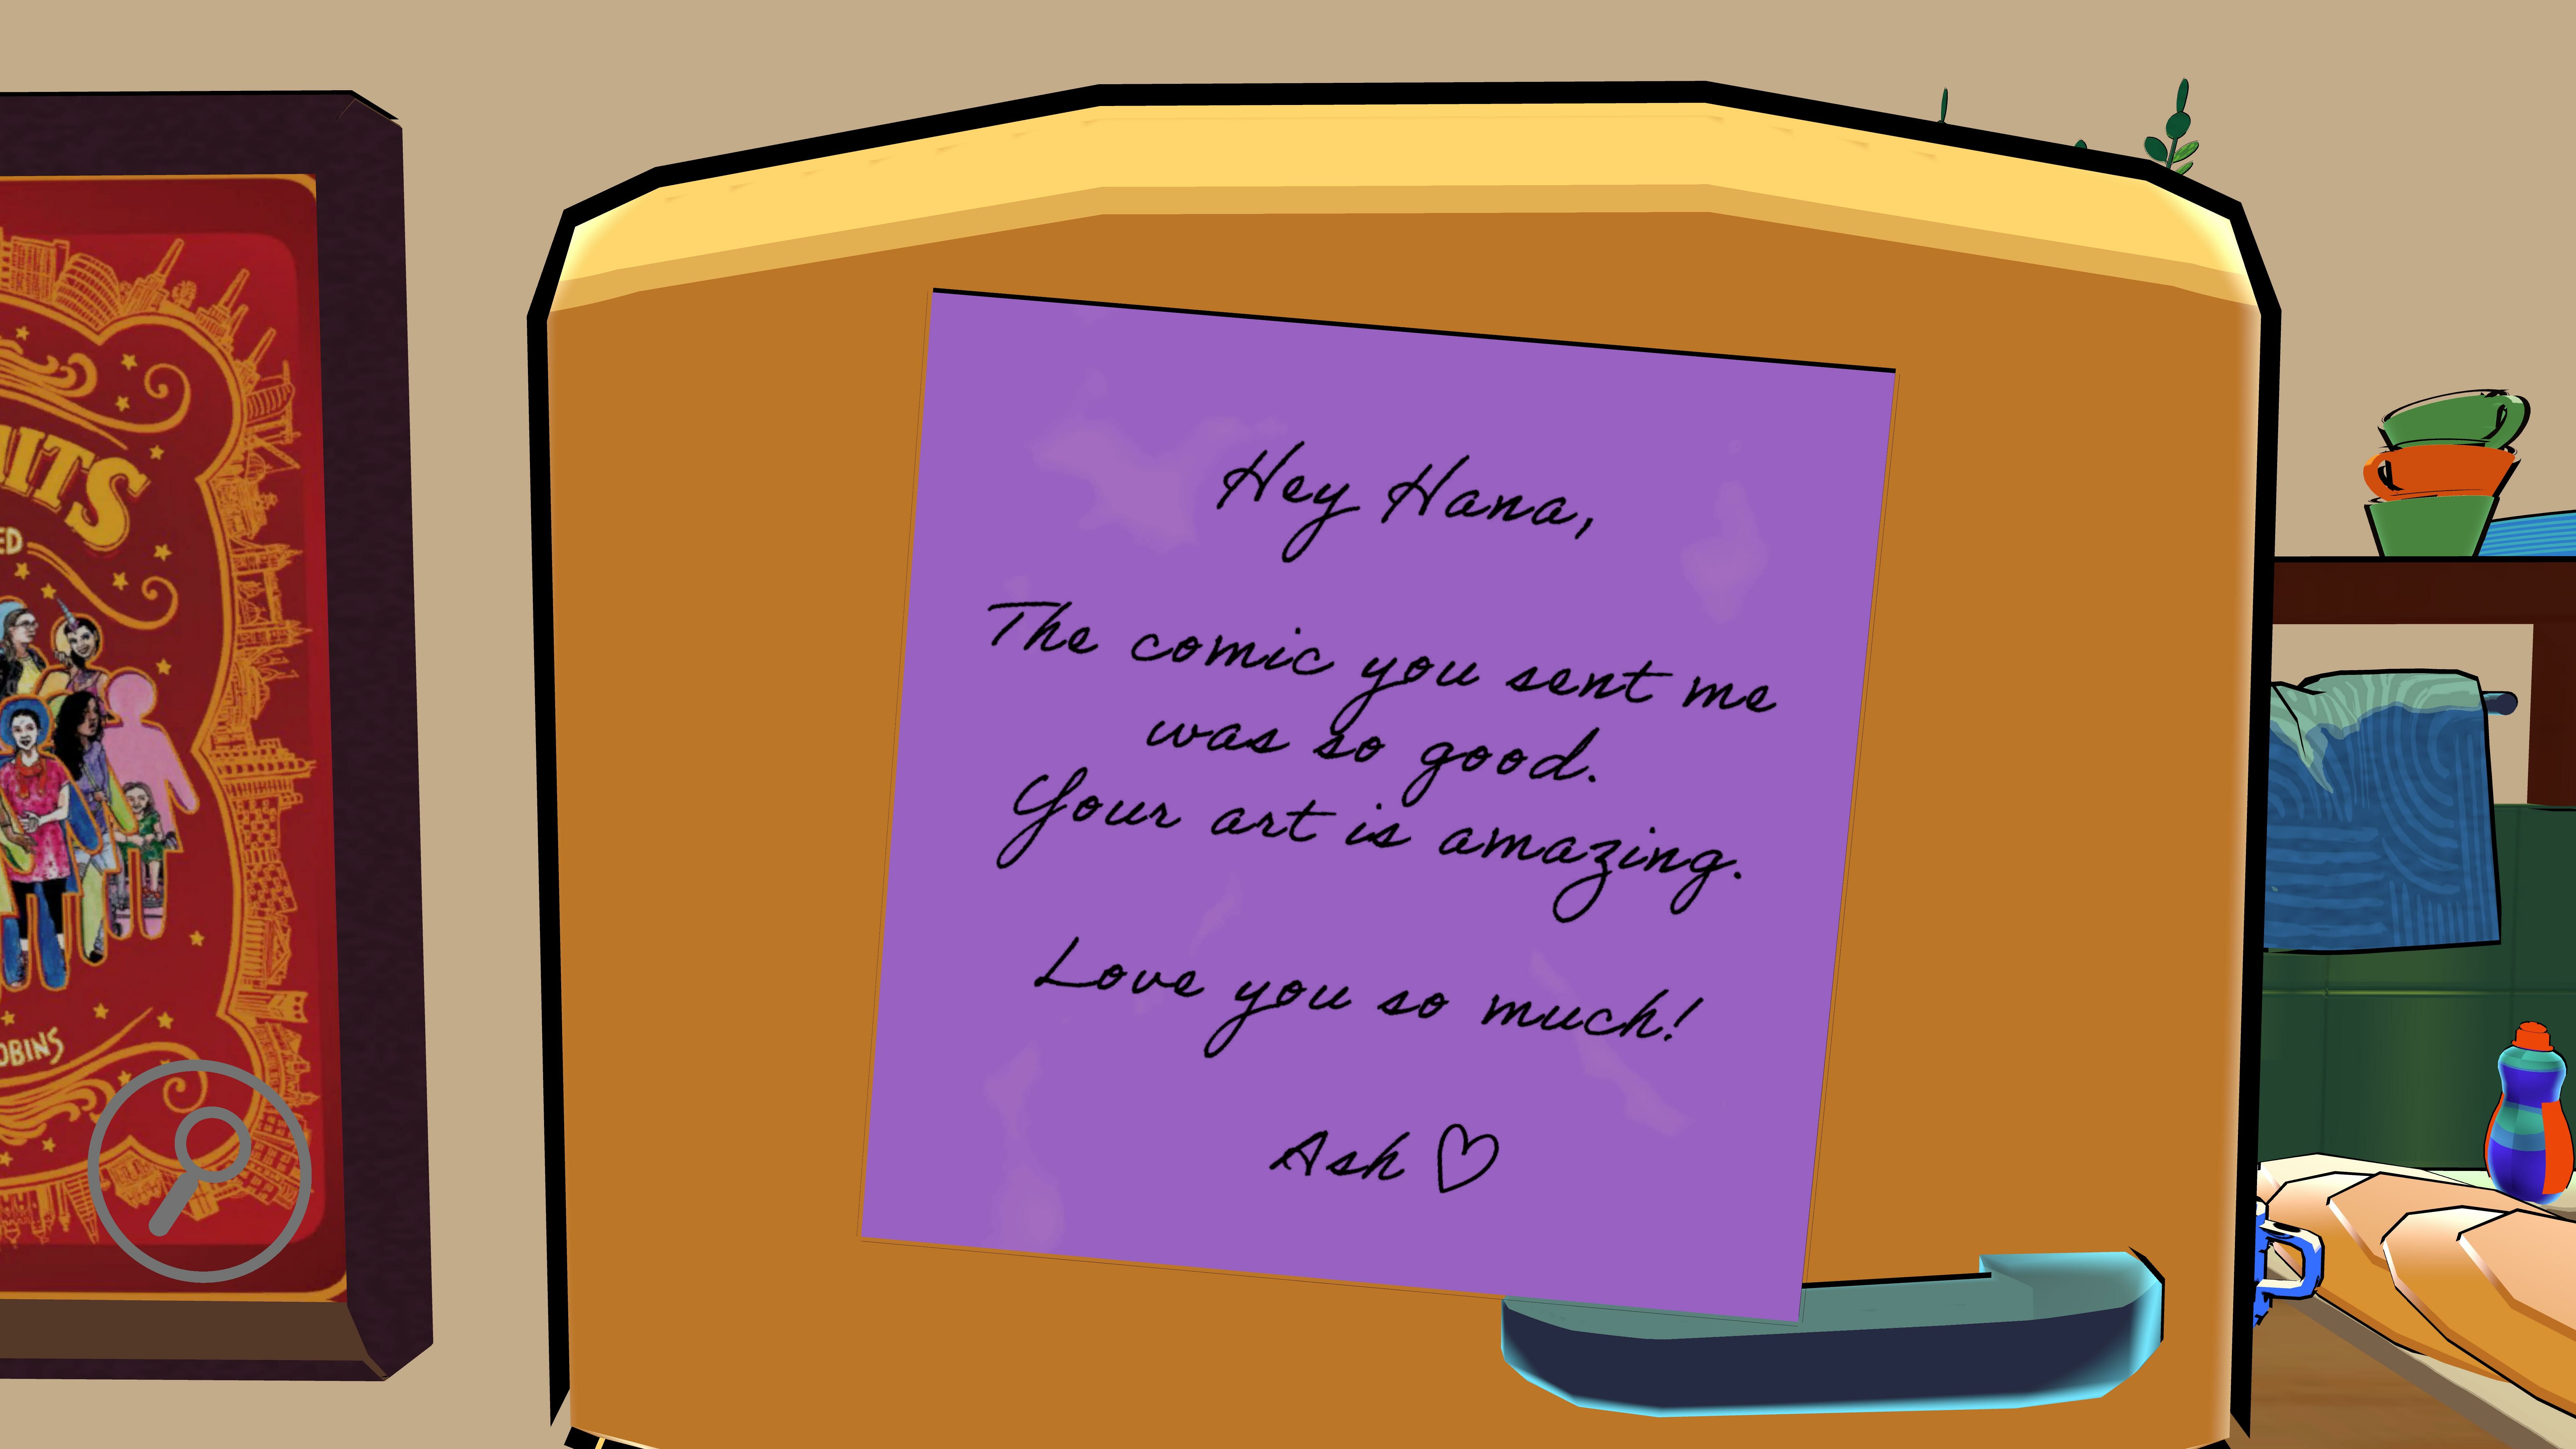 Hey Hana,
The comic you sent me
was so good.
Your art is amazing.
Love you so much!
Ash